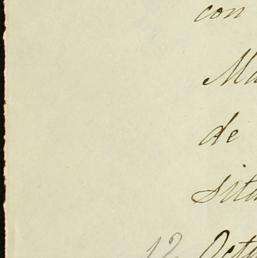 con
Ma
de
situ
12 Octu